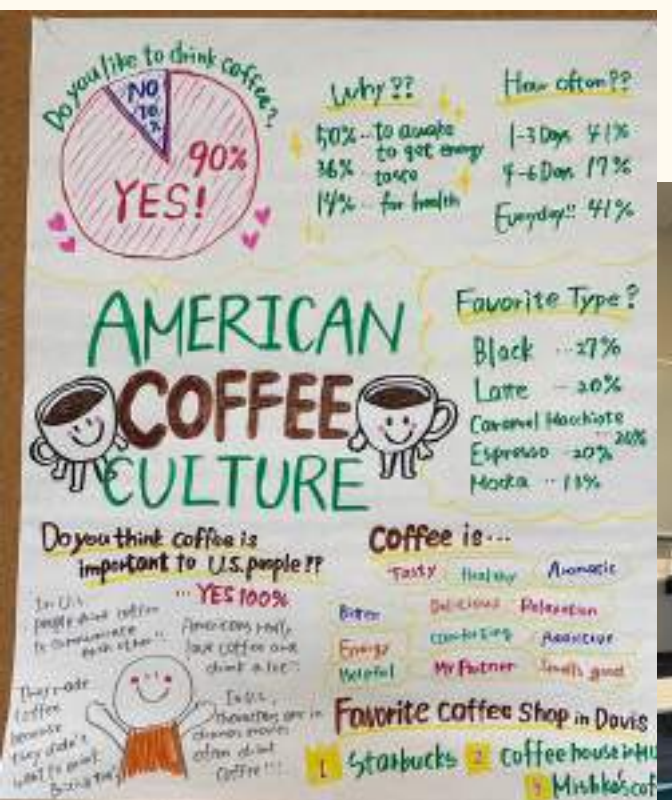 Do you like to drink coffee?
NO
10
%
90%
YES!
Why??
50% -- to awake
to get energy
36% taste
14% -- for health
How often??
1-3 Days 41%
4-6 Days 17%
Everyday!! 41%
AMERICAN
COFFEE
CULTURE
Favorite Type?
Black --- 27%
Latte -- 20%
Caramel Macchiato
--- 20%
Espresso -- 20%
Mocha -- 13%
Do you think coffee is
important to U.S. people??
... YES 100%
In U.S.
people drink coffee
to communicate
each other
Americans really
love coffee and
drink a lot!!
They made
coffee
because
they didn't
want to drink
In U.S.,
characters are in
dramas movies
often drink
coffee!!!
Coffee is...
Tasty Healthy Aromatic
Bitter Delicious Relaxation
Energy comforting Addictive
Helpful My Partner Smells good
Favorite Coffee Shop in Davis
1 Starbucks 2 Coffee house in
3 Mishka's